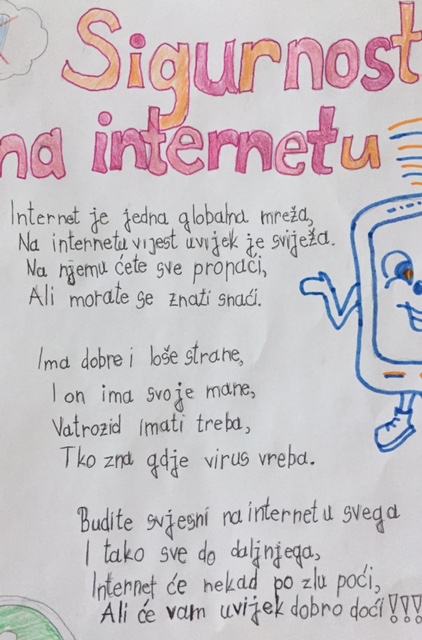 Sigurnost
na internetu
Internet je jedna globalna mreža,
Na internetu vijest uvijek je svježa.
Na njemu ćete sve pronaći,
Ali morate se znati snaći.
Ima dobre i loše strane,
I on ima svoje mane,
Vatrozid imati treba,
Tko zna gdje virus vreba.
Budite svjesni na internetu svega
I tako sve do daljnjega,
Internet će nekad po zlu poći,
Ali će vam uvijek dobro doći!!!